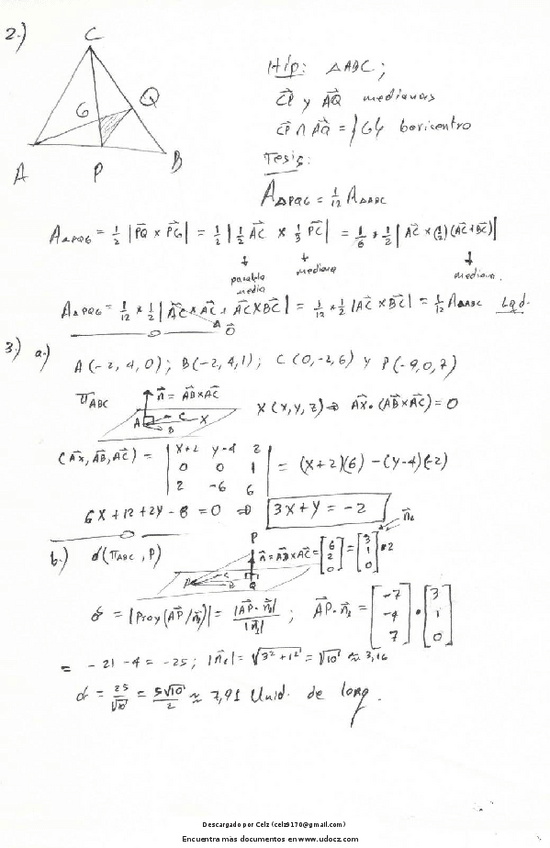 2.)
C
G
Q
A
P
B
Hip: △ABC;
CP y AQ medianas
CP ∩ AQ = {G} baricentro
Tesis:
A△PQG = 1/12 A△ABC
A△PQG = 1/2 |PQ × PG| = 1/2 |1/2 AC × 1/3 PC| = 1/6 * 1/2 |AC × (1/2)(AC+BC)|
↓ ↓ ↓
paralela mediana mediana.
media
A△PQG = 1/12 * 1/2 |AC × AC + AC × BC| = 1/12 * 1/2 |AC × BC| = 1/12 A△ABC Lqd.
0
3.) a.) A(-2, 4, 0); B(-2, 4, 1); C(0, -2, 6) y P(-9, 0, 7)
πABC
n = AB × AC
A C X
B
X(x, y, z) ⇒ AX • (AB × AC) = 0
(AX, AB, AC) = | x+2 y-4 z | = (x+2)(6) - (y-4)(-2)
0 0 1
2 -6 6
6x + 12 + 2y - 8 = 0 ⇒ 3x + y = -2
b.) d(πABC, P)
P
n = AB × AC = [6 2 0] = [3 1 0] * 2
n₁
Q
d = |Proy(AP/n₁)| = |AP • n₁| / |n₁| ; AP • n₁ = [-7 -4 7] • [3 1 0]
= -21 - 4 = -25; |n₁| = √(3² + 1²) = √10 ≈ 3,16
d = 25/√10 = 5√10/2 ≈ 7,91 Unid. de long.
Descargado por Celz (celz9170@gmail.com)
Encuentra más documentos en www.udocz.com